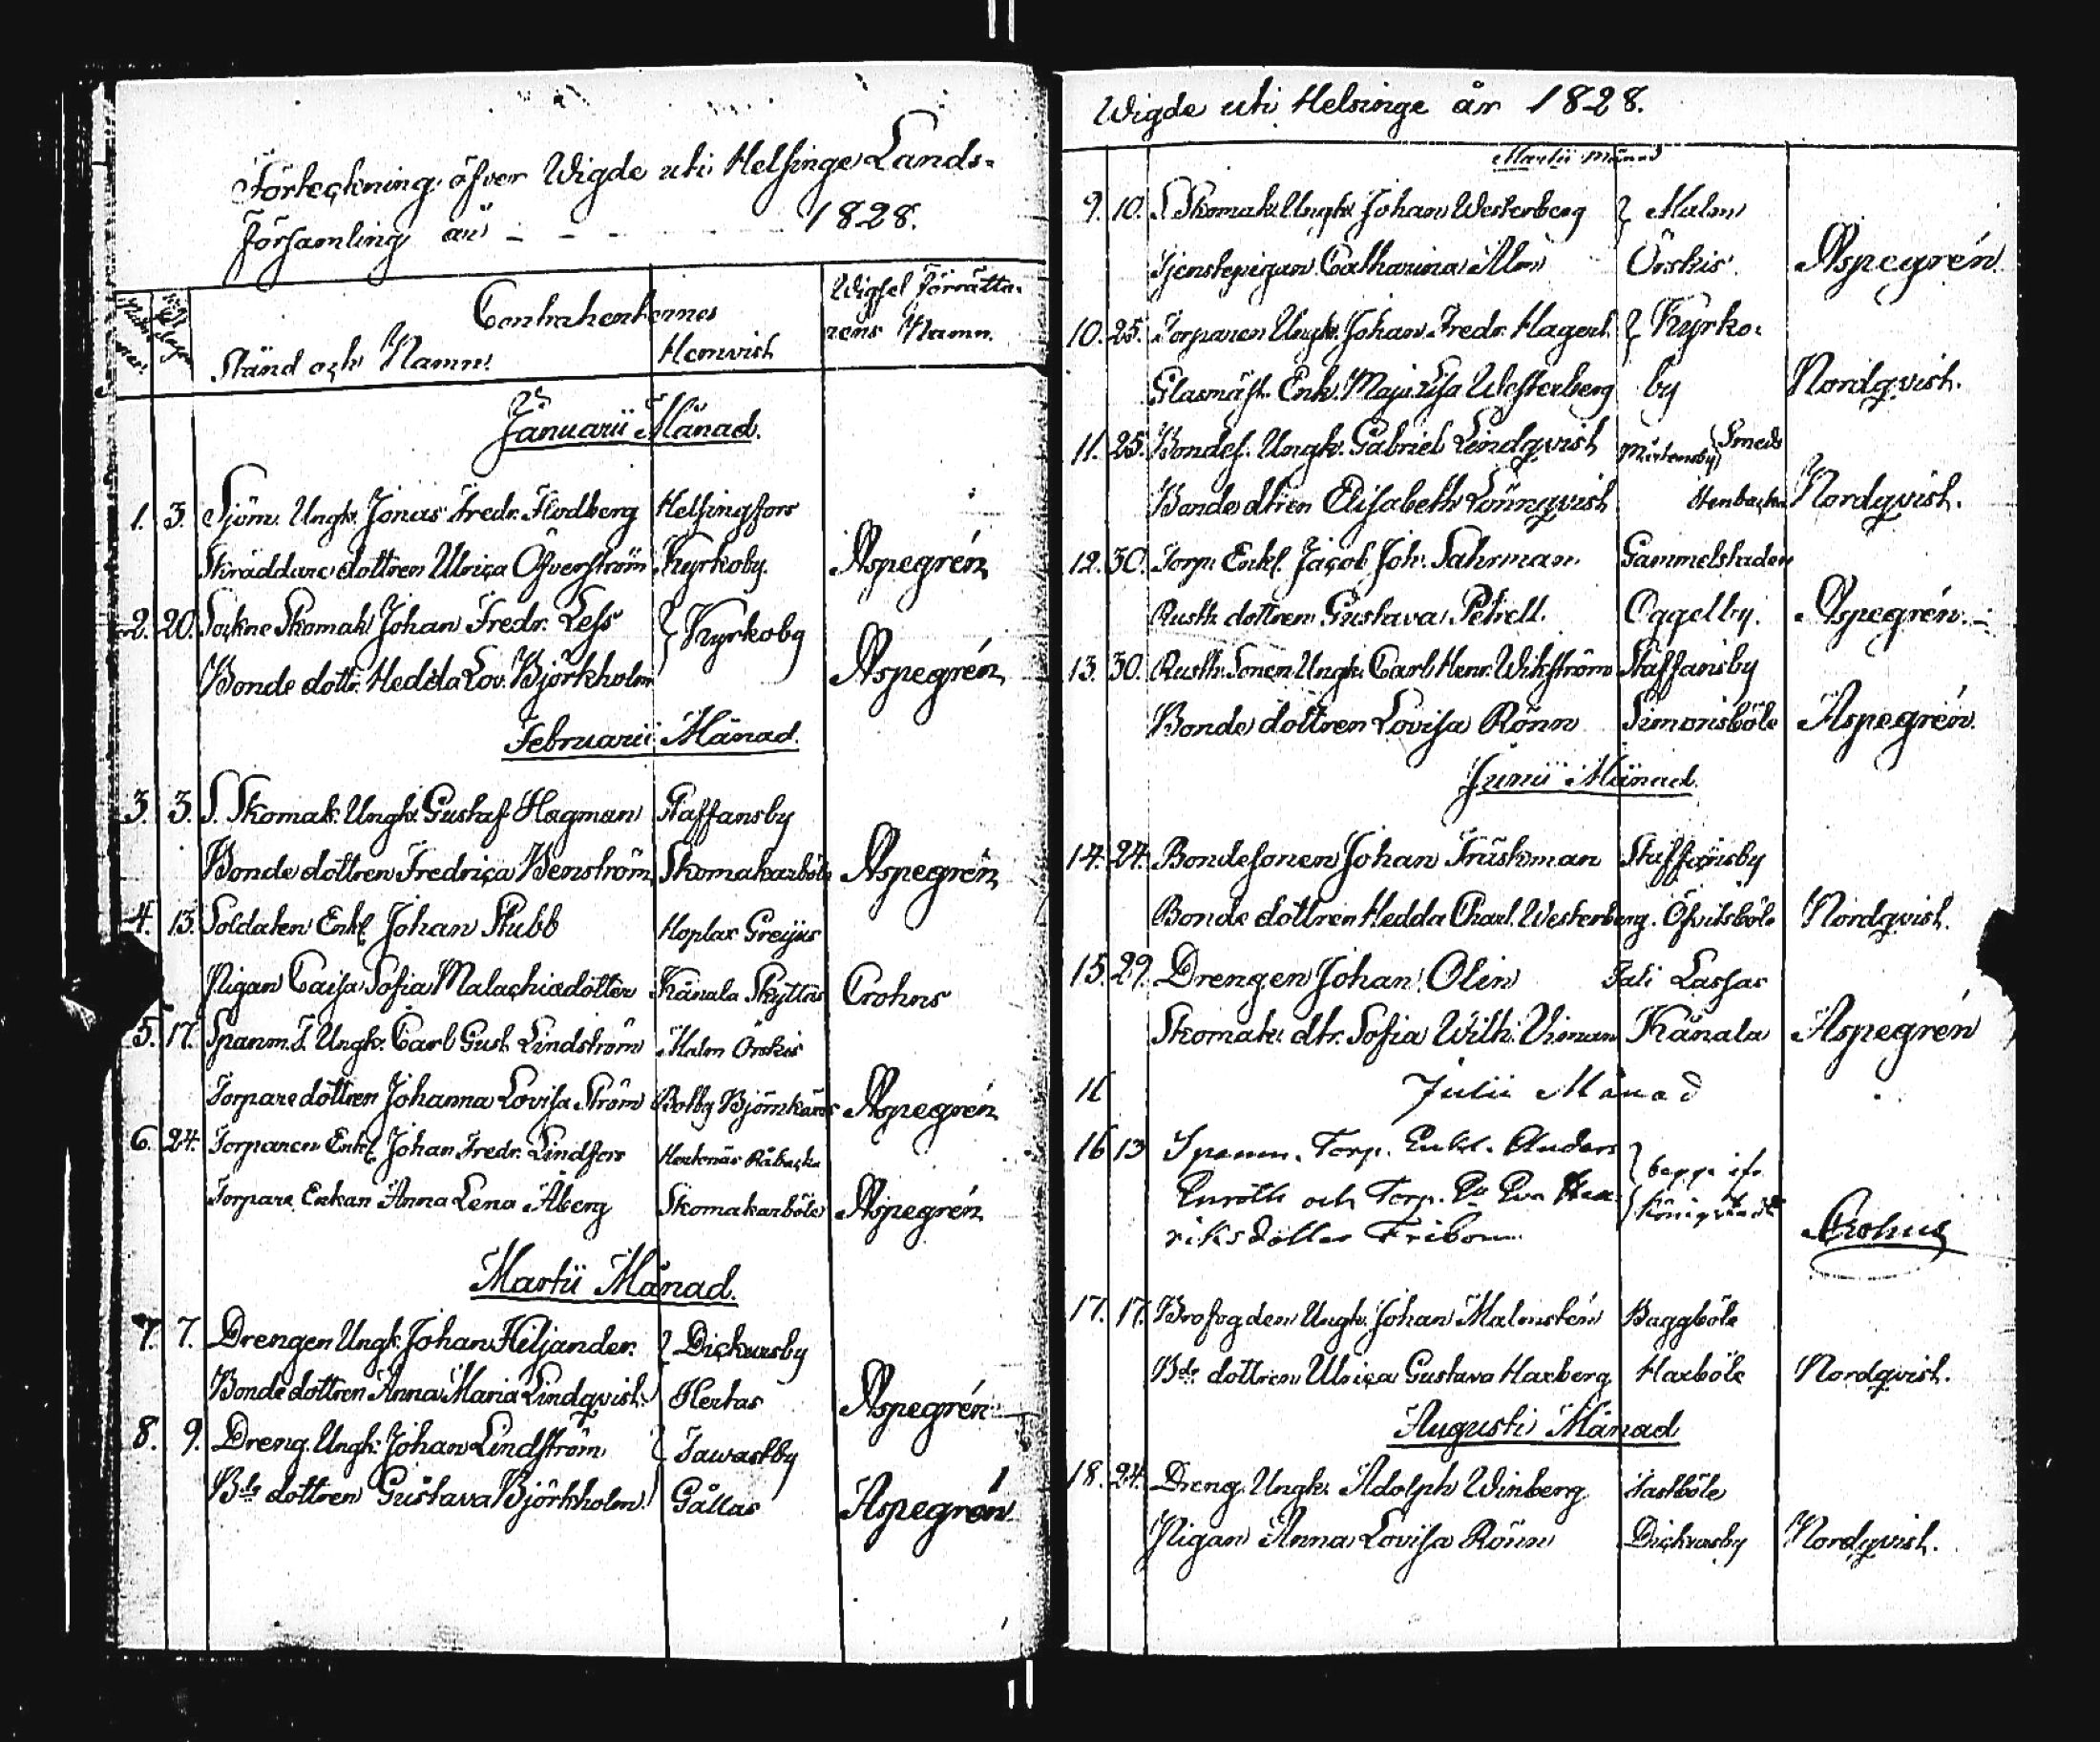 Förteckning öfver Wigde uti Helsinge Lands-
Församling år - - - - - 1828.
Contrahenternes
Wigsel Förrätta-
rens Namn.
Stånd och Namn.
Hemvist
Januarii Månad.
1. 3. Sjöm. Ungk. Jonas Fredr. Flodberg Helsingfors
Skräddare dottren Ulrica Öfverström Kyrkoby. Aspegrén
2. 20. Sockne Skomak. Johan Fredr. Less } Kyrkoby
Bonde dottr. Hedda Lov. Björkholm Aspegrén
Februarii Månad.
3. 3. S. Skomak. Ungk. Gustaf Hagman Staffansby
Bonde dottren Fredrica Benström Skomakarböle Aspegrén
4. 13. Soldaten Enkl. Johan Stubb Hoplax Greijus
Pigan Caisa Sofia Malachiadotter Kånala Skyttas Crohns
5. 17. Spanm. T. Ungk. Carl Gust. Lindström Malm Örskis
Torpare dottren Johanna Lovisa Ström Botby Björnkärrs Aspegrén
6. 24. Torparen Enkl. Johan Fredr. Lindfors Hertonäs Råbacka
Torpare Enkan Anna Lena Åberg Skomakarböle Aspegrén
Martii Månad.
7. 7. Drengen Ungk. Johan Heljander. } Dickursby
Bonde dottren Anna Maria Lindqvist. Hertas Aspegrén
8. 9. Dreng. Ungk. Johan Lindström } Tawastby
Bde dottren Gustava Björkholm Gållas Aspegrén
Wigde uti Helsinge år 1828.
Martii månad
9. 10. S Skomak. Ungk. Johan Westerberg } Malm
Tjenstepigan Catharina Alm Örskis. Aspegrén.
10. 25. Torparen Ungk. Johan Fredr. Hagert } Kyrko-
Glasmäst. Enk. Maja Lisa Westerberg by Nordqvist.
11. 25. Bondes. Ungk. Gabriel Lindqvist Mårtensby Smeds
Bonde dtren Elisabeth Lönnqvist Stenbacka Nordqvist.
12. 30. Torp. Enkl. Jacob Joh. Sahrman. Gammelstaden
Rusth. dottren Gustava Petrell. Oggelby. Aspegrén.
13. 30. Rusth. Sonen Ungk. Carl Henr. Wikström Staffansby
Bonde dottren Lovisa Rönn Simonsböle Aspegrén.
Junii Månad.
14. 24. Bondesonen Johan Träskman Staffansby
Bonde dottren Hedda Charl. Westerberg. Öfvitsböle Nordqvist.
15. 29. Drengen Johan Olin Tali Lassas
Skomak. dtr. Sofia Wilh. Viman Kånala Aspegrén
16 Julii Månad
16 13 Spanm. Torp. Enkl. Anders } begge ifr.
Enroth och Torp. Da Eva Hen-
riksdotter Fribom Crohns
17. 17. Brofogden Ungk. Johan Malmstén Baggböle
Bde dottren Ulrica Gustava Haxberg Haxböle Nordqvist.
Augusti Månad
18. 24. Dreng. Ungk. Adolph Winberg Fastböle
Pigan Anna Lovisa Rönn Dickursby Nordqvist.